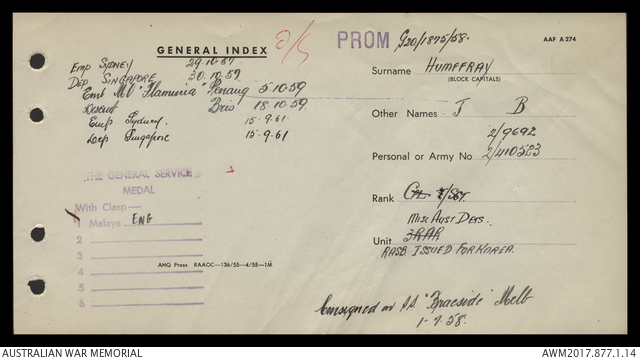 GENERAL INDEX
O/S
PROM G20/1875/58.
AAF A 274
Emp SYDNEY 29.10.57
Dep SINGAPORE 30.10.57
Emb MV "Flaminia" Penang 5.10.59
Disemb Bris 18.10.59
Emp Sydney 15.9.61
Dep Singapore 15.9.61
Surname HUMFFRAY
(BLOCK CAPITALS)
Other Names J B
2/9692
Personal or Army No 2/410523
Rank CPL T/SGT.
Misc Aust Dets.
Unit 3RAR
RASB ISSUED FOR KOREA.
THE GENERAL SERVICE
MEDAL
With Clasp—
1 Malaya ENG
2
3
4
5
6
AHQ Press RAAOC—136/55—4/55—1M
Consigned on S.S. "Braeside" Melb
1-7-58.
AUSTRALIAN WAR MEMORIAL
AWM2017.877.1.14